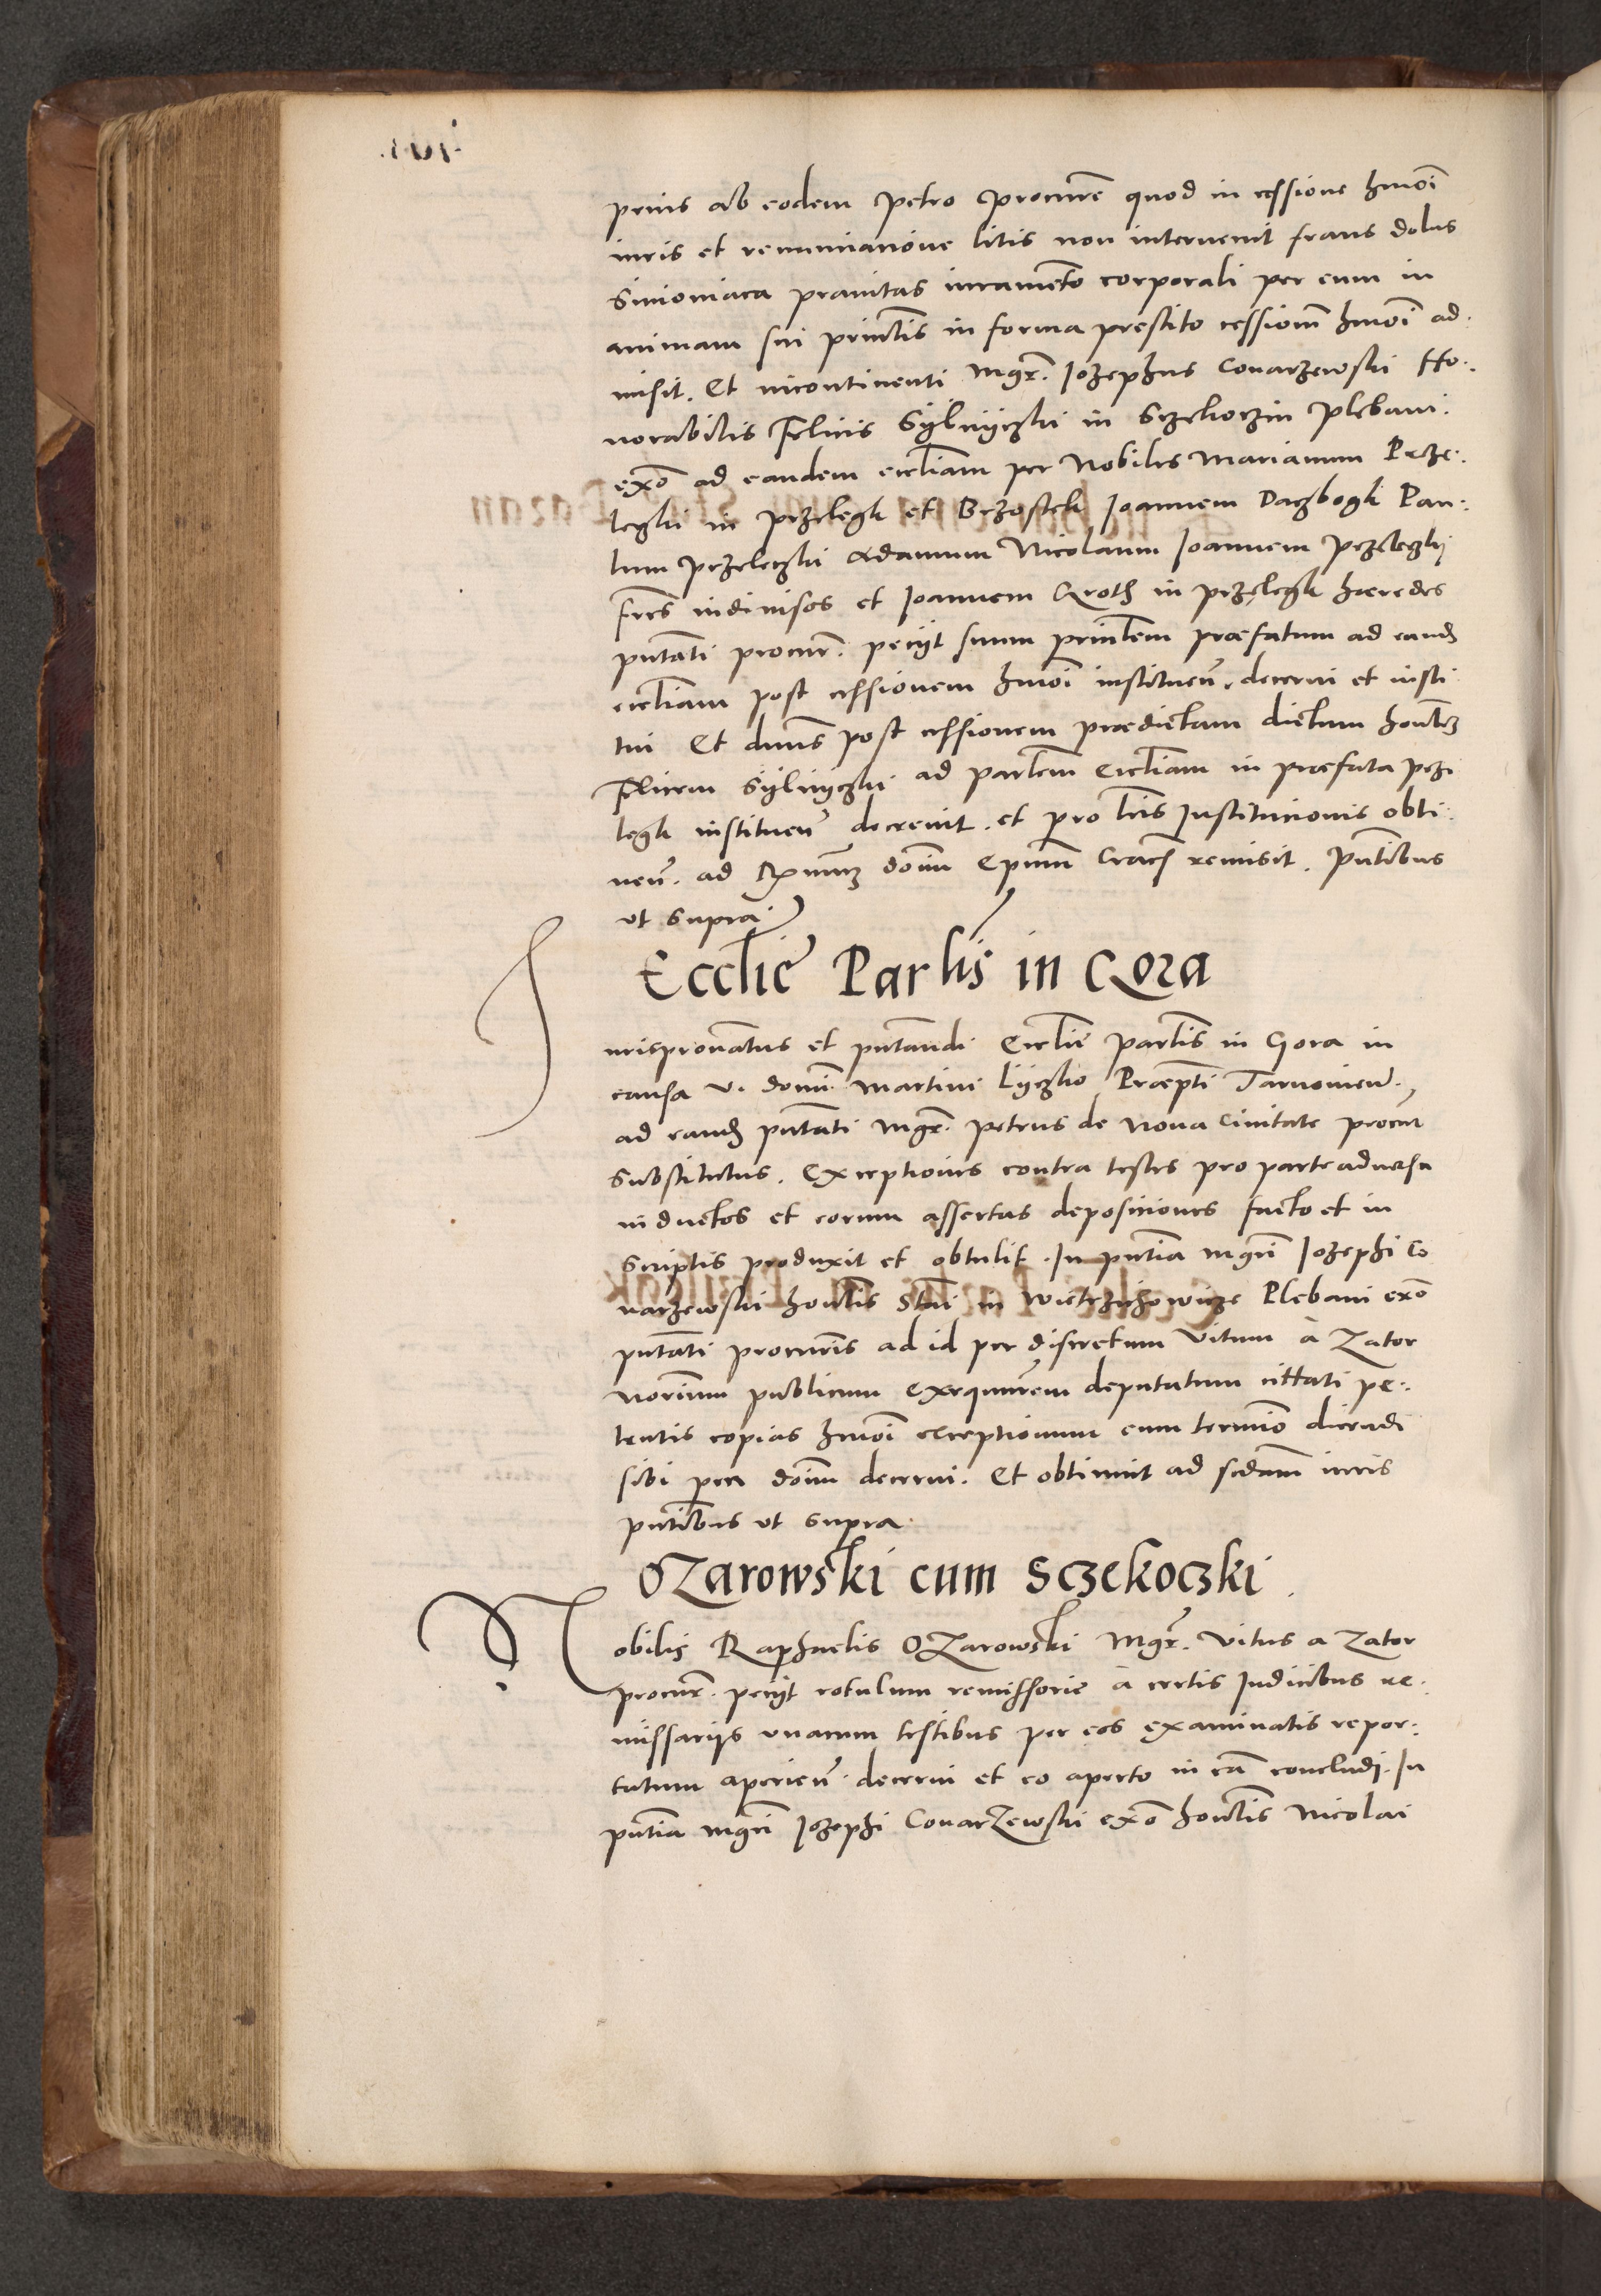 prius ab eodem Petro procur̃e quod in cessione hmõi
iuris et renunciatione litis non intervenit fraus dolus
Simoniaca pravitas iuramẽto corporali per eum in
animam sui prinĉlis in forma prestito cessionẽ hmõi ad:
misit. Et incontinenti Mgr̃. Iozephus Covarzewski Ho:
norabilis Felicis Sÿlnÿczki in Sczekoczin Plebani.
exõ ad eandem ecclĩam per Nobiles Marianum Przc:
legski in Przelegk et Brzostek Ioannem Dagbogk Pau:
lum Przeleczki Adamum Nicolaum Ioannem Przelegkÿ
fr̃es indivisos et Ioannem Groth in Przelegk haeredes
pñtãti procur̃. peciit suum prinĉlem praefatum ad eand̃
ecclĩam post cessionem hmõi instituen̄. decerni et insti
tui Et dñus post cessionem praedictam dictum honlẽ
Felicem Sÿlniczki ad parlẽm Ecclĩam in praefata Prze
legk instituen̄ decrevit. et pro lr̃is Institucionis obti:
nen̄. ad R̃mum dõm Ep̃um Crac̃ remisit. Pñtibus
ut supra.
Ecclie Parlis in Gora
Iurispronatus et pñtandi Ecclie parlis in Gora in
causa v. domi. Martini Lÿczko Praep̃ti Tarnovien̄.
ad eand̃ pñtãti Mgr̃. Petrus de Nova Civitate procur
substitutus. Exceptiones contra testes pro parte adversa
inductos et eorum assertas depositiones facto et in
scriptis produxit et obtulit. In pñtia Mgr̃i Iozephi Co
varzewski honlis Stñi in Wietrzichowicze Plebani exõ
pñtãti procuris ad id per discretum Vitum à Zator
Nor̃ium publicum exequutorem deputatum cittati pe:
tentis copias hmõi exceptionum cum termiõ dicendi
sibi per dõm decerni. Et obtinuit ad sedam iuris
pñtibus ut supra.
OZarowski cum Sczekoczki.
Nobilis Raphaelis OZarowski Mgr̃. Vitus a Zator
procur̃. peciit rotulum remissorie à certis Iudicibus re:
missariis unacum testibus per eos examinatis repor:
tatum aperien̄. decerni et eo aperto in cã concludi. In
pñtia Mgr̃i Iozephi CovarZewski exõ honlis Nicolai